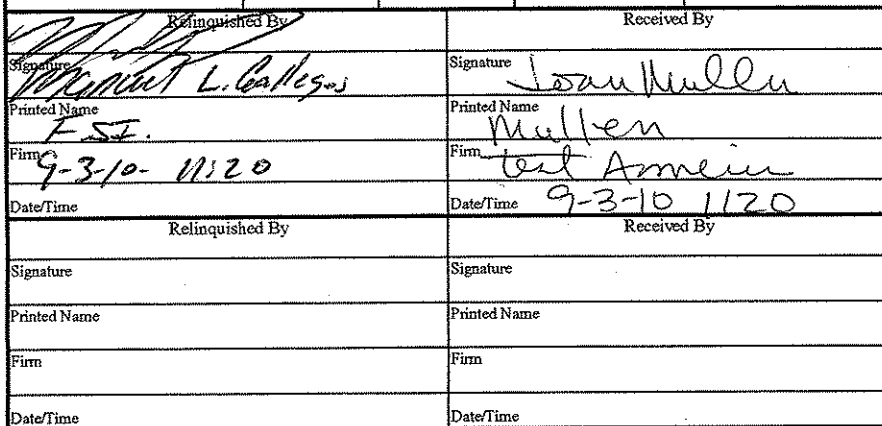 Relinquished By Received By
Signature Signature Joan Mullen
L. Gallegos
Printed Name Printed Name Mullen
F.S.I.
Firm Firm Test America
9-3-10- 11:20
Date/Time Date/Time 9-3-10 1120
Relinquished By Received By
Signature Signature
Printed Name Printed Name
Firm Firm
Date/Time Date/Time